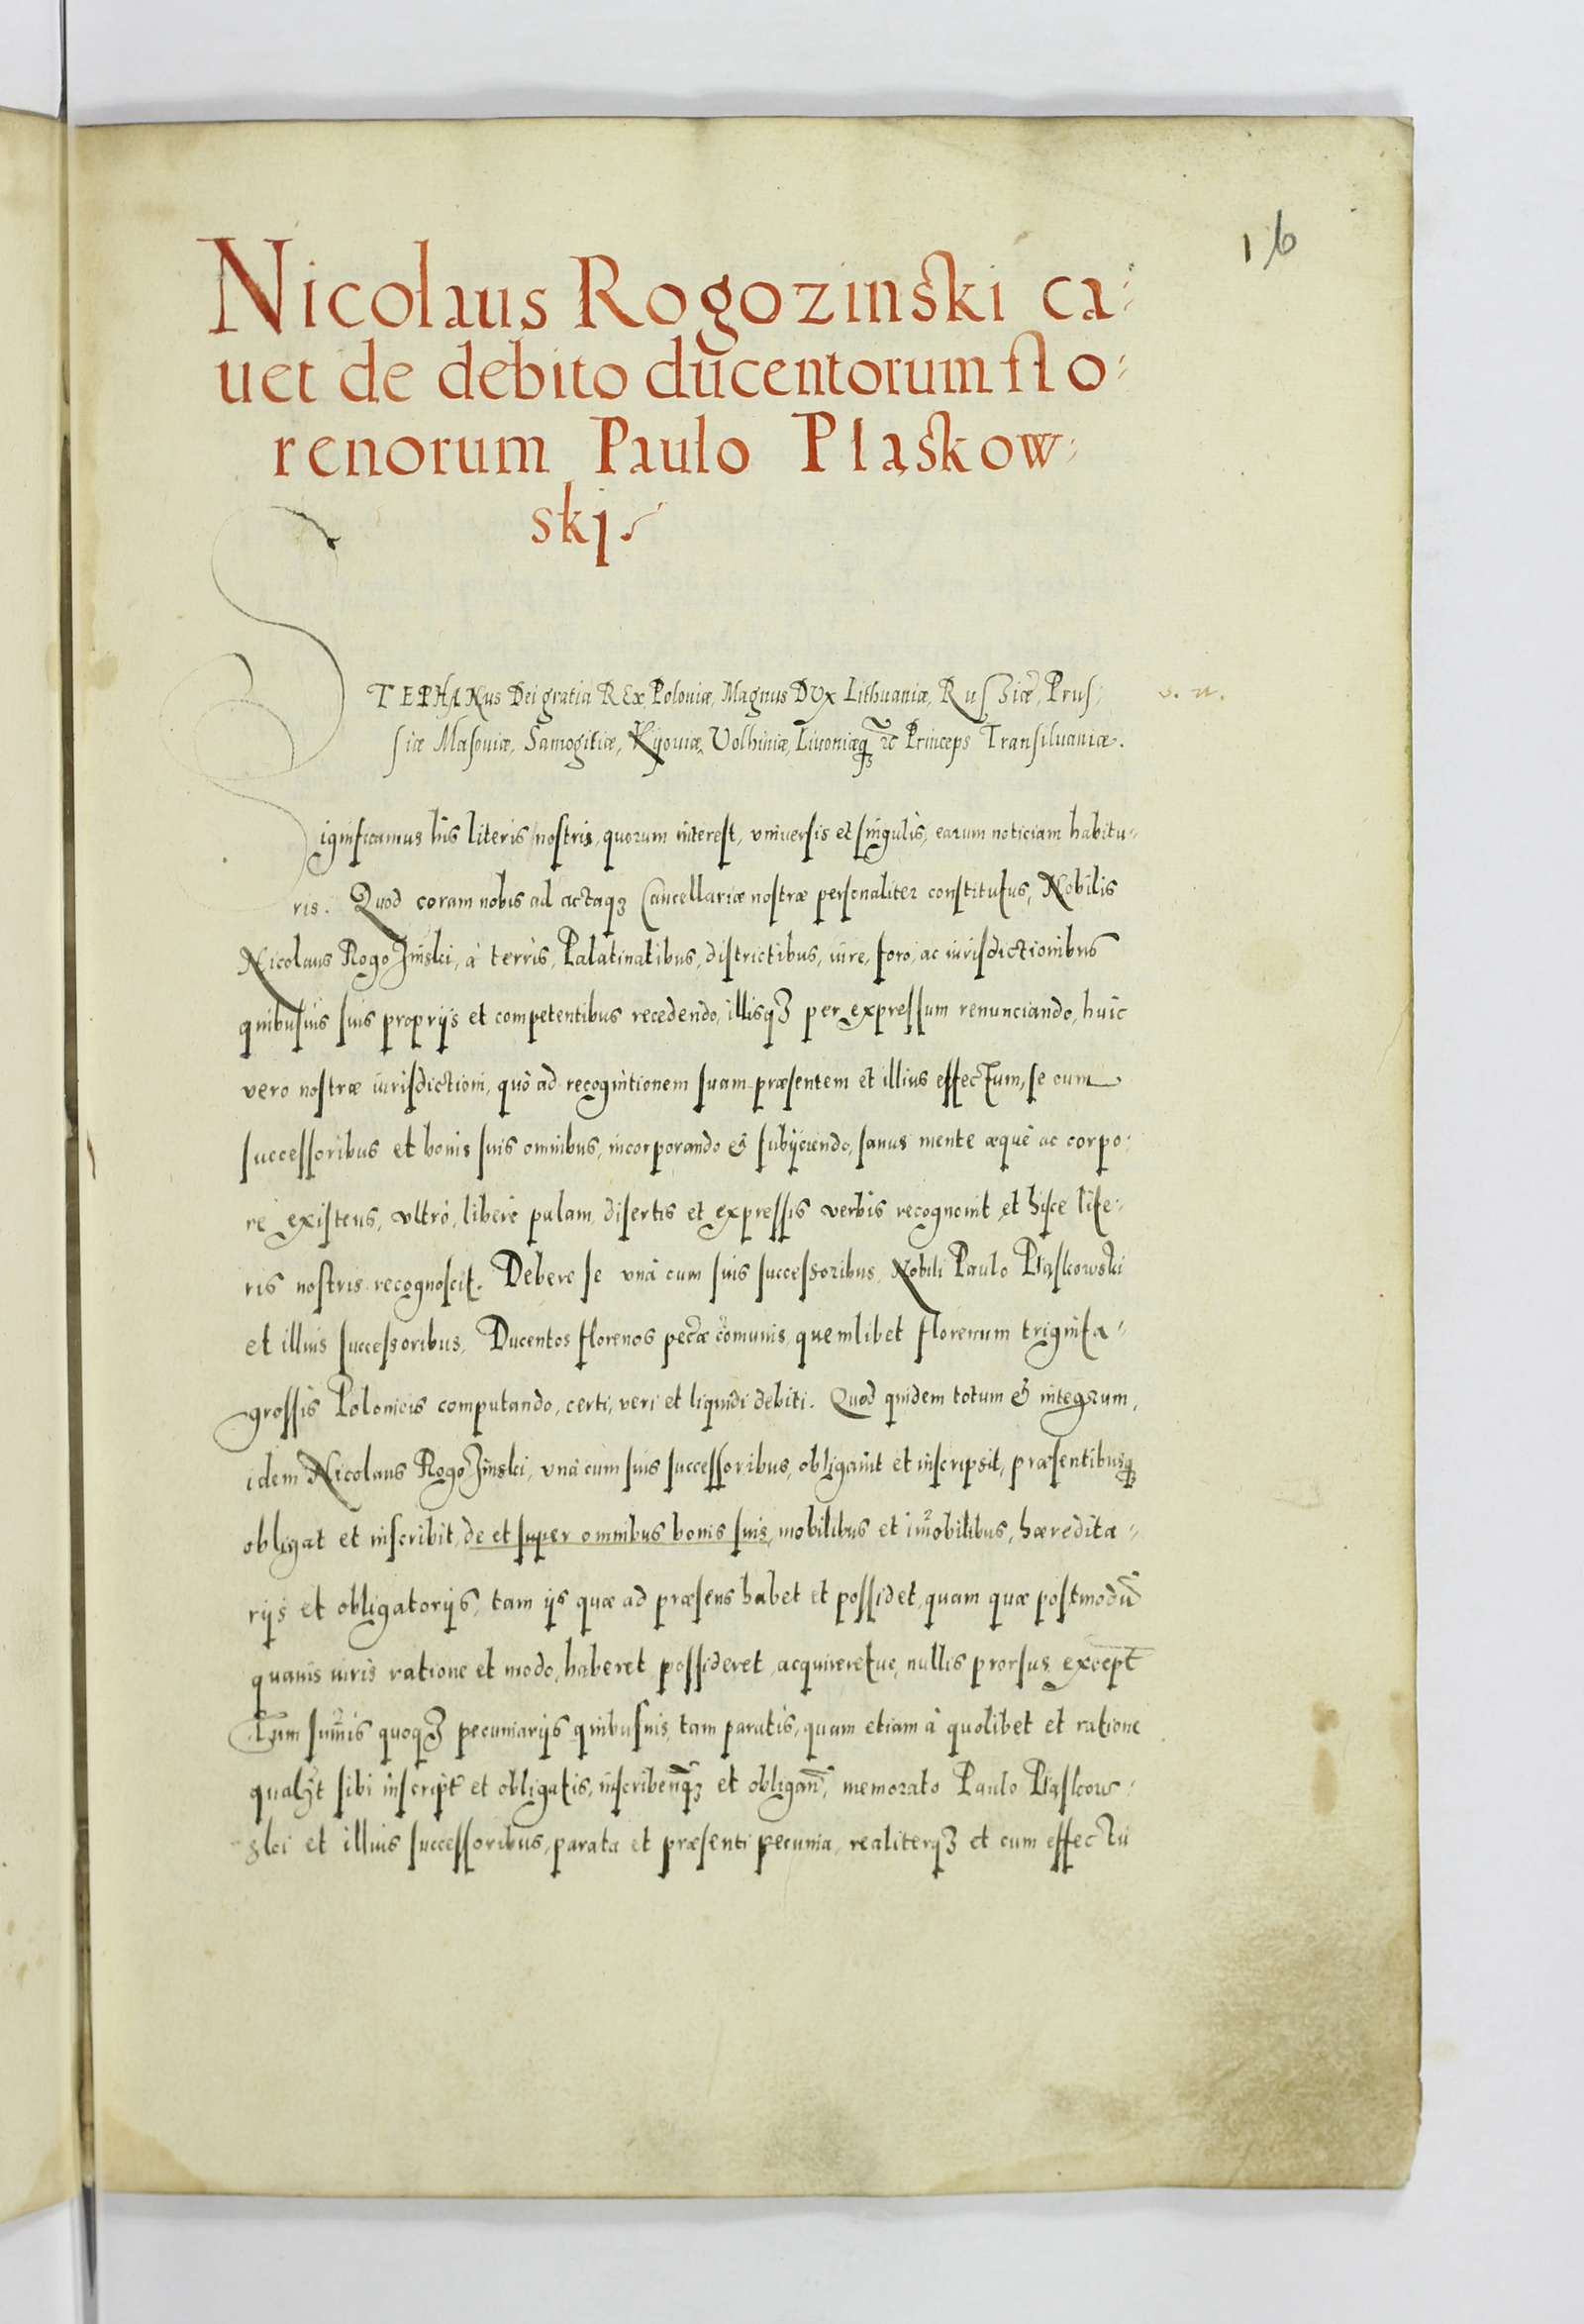 16
Nicolaus Rogozinski ca-
uet de debito ducentorum flo-
renorum Paulo Pląskow-
skj.
STEPHANus Dei gratia REx Poloniæ, Magnus DVx Lithuaniæ, Russiæ, Prus-
siæ Masouiæ, Samogitiæ, Kijouiæ, Volhiniæ, Liuoniæq₃ ꝛc Princeps Transiluaniæ.
Significamus his literis nostris, quorum interest, vniuersis et singulis, earum noticiam habitu-
ris. Quod coram nobis ad actaq₃ Cancellariæ nostræ personaliter constitutus, Nobilis
Nicolaus Rogozinski, à terris, Palatinatibus, districtibus, iure, foro, ac iurisdictionibus
quibusuis suis proprijs et competentibus recedendo, illisq₃ per expressum renunciando, huic
vero nostræ iurisdictioni, quò ad recognitionem suam præsentem et illius effectum, se cum
successoribus et bonis suis omnibus, incorporando & subijciendo, sanus mente æquè ac corpo-
re existens, vltrò, liberè palam, disertis et expressis verbis recognouit et hisce lite-
ris nostris recognoscit. Debere se vnà cum suis successoribus, Nobili Paulo Pląskowski
et illius successoribus, Ducentos florenos pecæ com̃unis, quemlibet florenum triginta
grossis Polonicis computando, certi, veri et liquidi debiti. Quod quidem totum & integrum,
idem Nicolaus Rogozinski, vnà cum suis successoribus, obligauit et inscripsit, præsentibusq₃
obligat et inscribit, de et super omnibus bonis suis, mobilibus et im̃obilibus, hæredita-
rijs et obligatorijs, tam ijs quæ ad præsens habet et possidet, quam quæ postmodũ
quauis iuris ratione et modo, haberet possideret, acquireretue, nullis prorsus except̃
Tum sum̃is quoq₃ pecuniarijs quibusuis, tam paratis, quam etiam à quolibet et ratione
qualit̃ sibi inscript̃ et obligatis, inscribenq̃₃ et obligañ, memorato Paulo Pląskow-
ski et illius successoribus, parata et præsenti pecunia, realiterq₃ et cum effectu